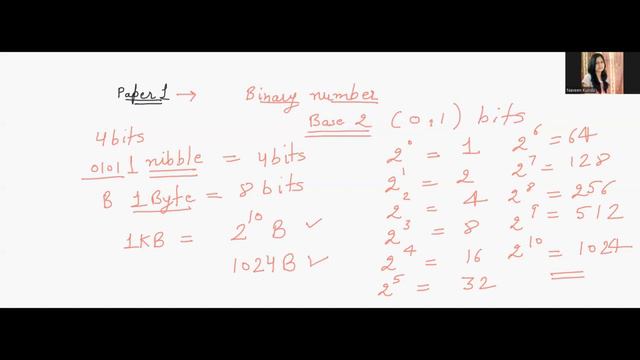 Paper 1 → Binary number
Base 2 (0,1) bits
4 bits
0101 1 nibble = 4 bits
B 1 Byte = 8 bits
1KB = 2^10 B ✓
1024B ✓
2^0 = 1
2^1 = 2
2^2 = 4
2^3 = 8
2^4 = 16
2^5 = 32
2^6 = 64
2^7 = 128
2^8 = 256
2^9 = 512
2^10 = 1024